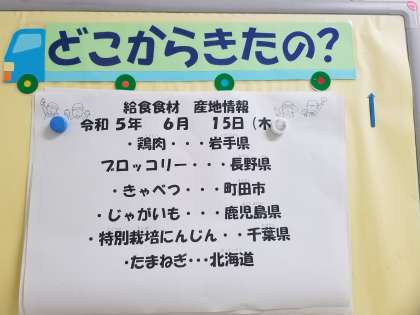 どこからきたの?
給食食材　産地情報
令和 5年　6月　15日（木
・鶏肉・・・岩手県
ブロッコリー・・・長野県
・きゃべつ・・・町田市
・じゃがいも・・・鹿児島県
・特別栽培にんじん・・千葉県
・たまねぎ・・・北海道